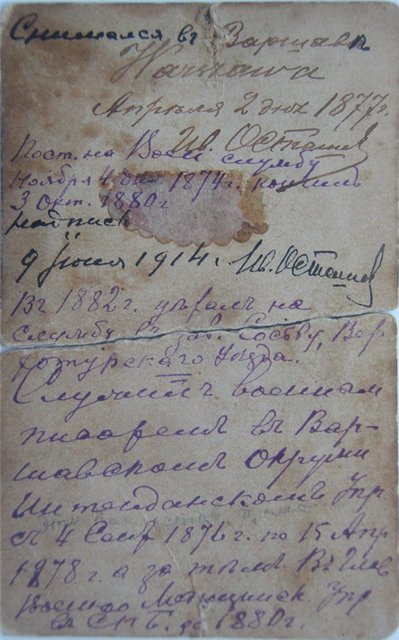 Снимался въ Варшавѣ
Warszawa
Апрѣля 2 дня 1877 г.
Ив. Осташев
Пост. на Воен службу
Ноября 4 дня 1874 г. кончилъ
3 Окт. 1880 г
надпись
9 Июня 1914 г. Ив. Осташев
Въ 1882 г. уѣхалъ на
службу въ зав. Сосьву, Вер
хотурскаго Уѣзда.
Служилъ военнымъ
писаремъ въ Вар-
шавскомъ Окружн
Интенданскомъ Упр
съ 4 Сент 1876 г. по 15 Апр
1878 г. а затѣмъ Въ Глав
Военно Медицинск. Упр
въ С.П.Б. до 1880 г.